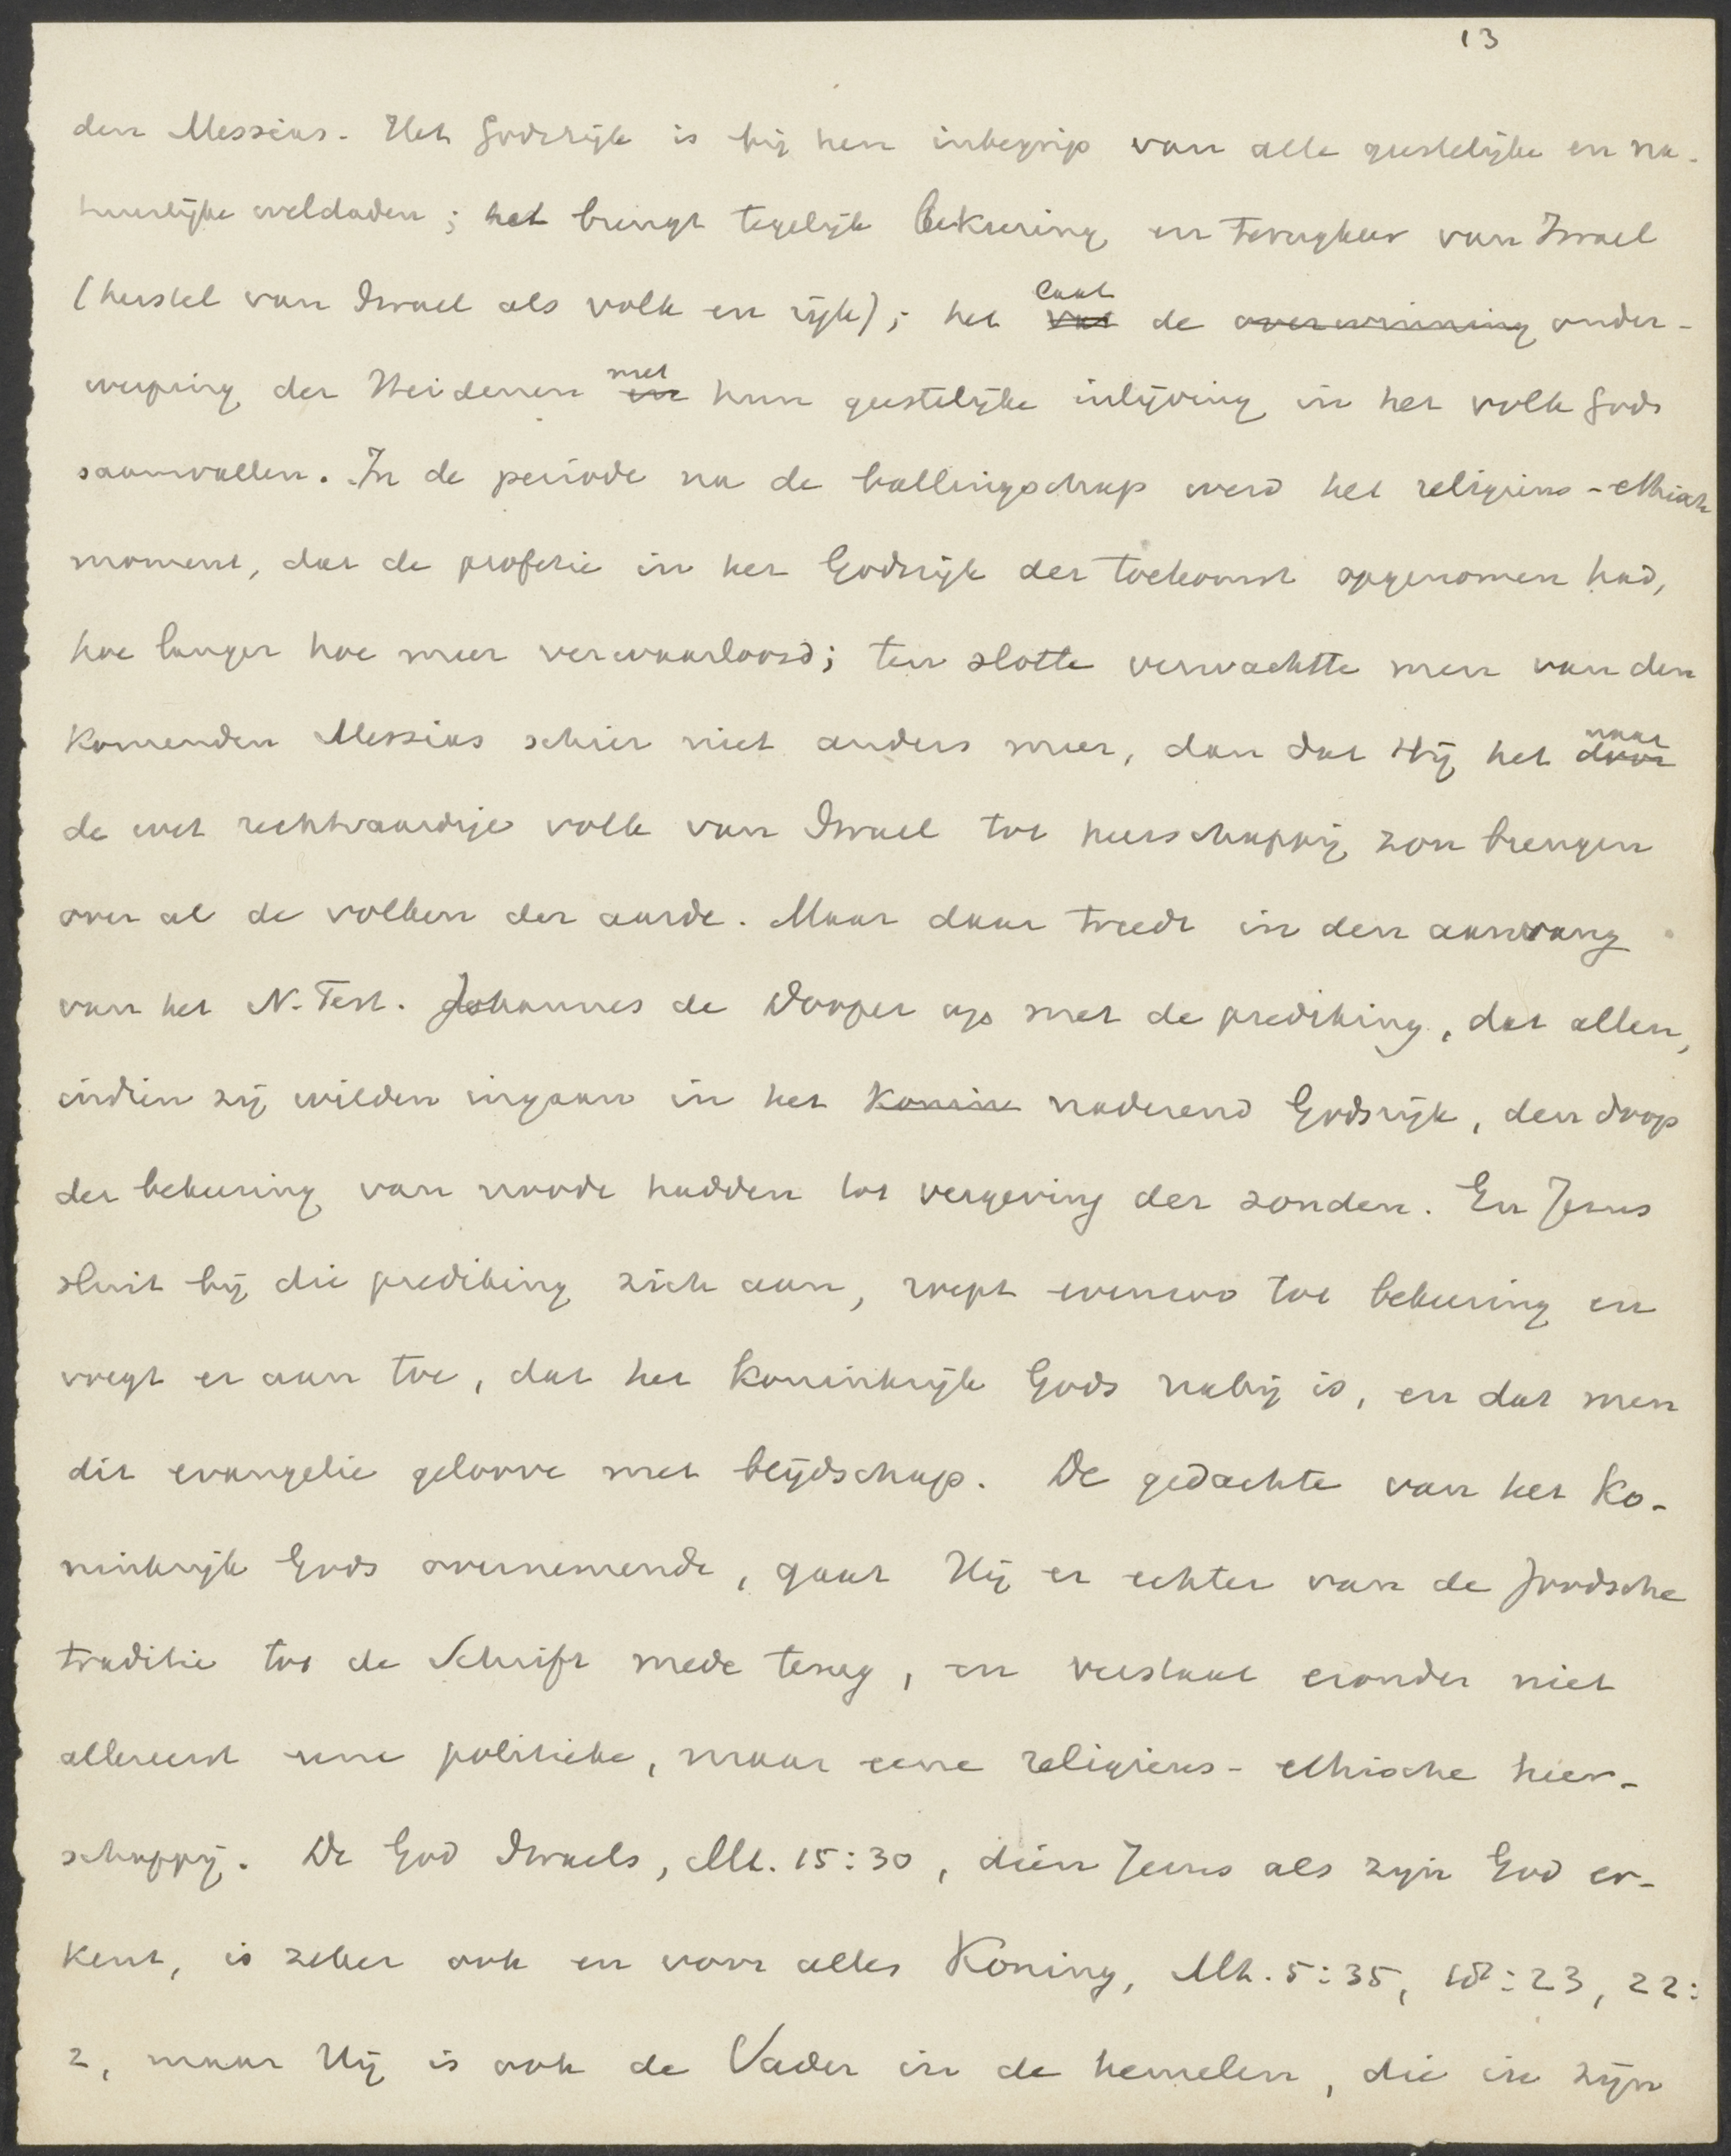 13
den Messias. Het Godsrijk is bij hen inbegrip van alle geestelijke en na-
tuurlijke weldaden; het brengt tegelijk bekeering en terugkeer van Israel
(herstel van Israel als volk en rijk); het laat de onder-
werping der Heidenen met hun geestelijke inlijving in het volk Gods
saamvallen. In de periode na de ballingschap werd het religieus-ethisch
moment, dat de profetie in het Godsrijk der toekomst opgenomen had,
hoe langer hoe meer verwaarloosd; ten slotte verwachtte men van den
komenden Messias schier niet anders meer, dan dat Hij het naar
de wet rechtvaardige volk van Israel tot heerschappij zou brengen
over al de volken der aarde. Maar daar treedt in den aanvang
van het N. Test. Johannes de Dooper op met de prediking, dat allen,
indien zij wilden ingaan in het Konin naderend Godsrijk, den doop
der bekeering van noode hadden tot vergeving der zonden. En Jesus
sluit bij die prediking zich aan, roept evenzoo tot bekeering en
voegt er aan toe, dat het Koninkrijk Gods nabij is, en dat men
dit evangelie geloove met blijdschap. De gedachte van het Ko-
ninkrijk Gods overnemende, gaat Hij er echter van de Joodsche
traditie tot de Schrift mede terug, en verstaat eronder niet
allereerst eene politieke, maar eene religieus-ethische heer-
schappij. De God Israels, Mt. 15:30, dien Jesus als zijn God er-
kent, is zeker ook en voor alles Koning, Mt. 5:35, 18:23, 22:
2, maar Hij is ook de Vader in de hemelen, die in zijn